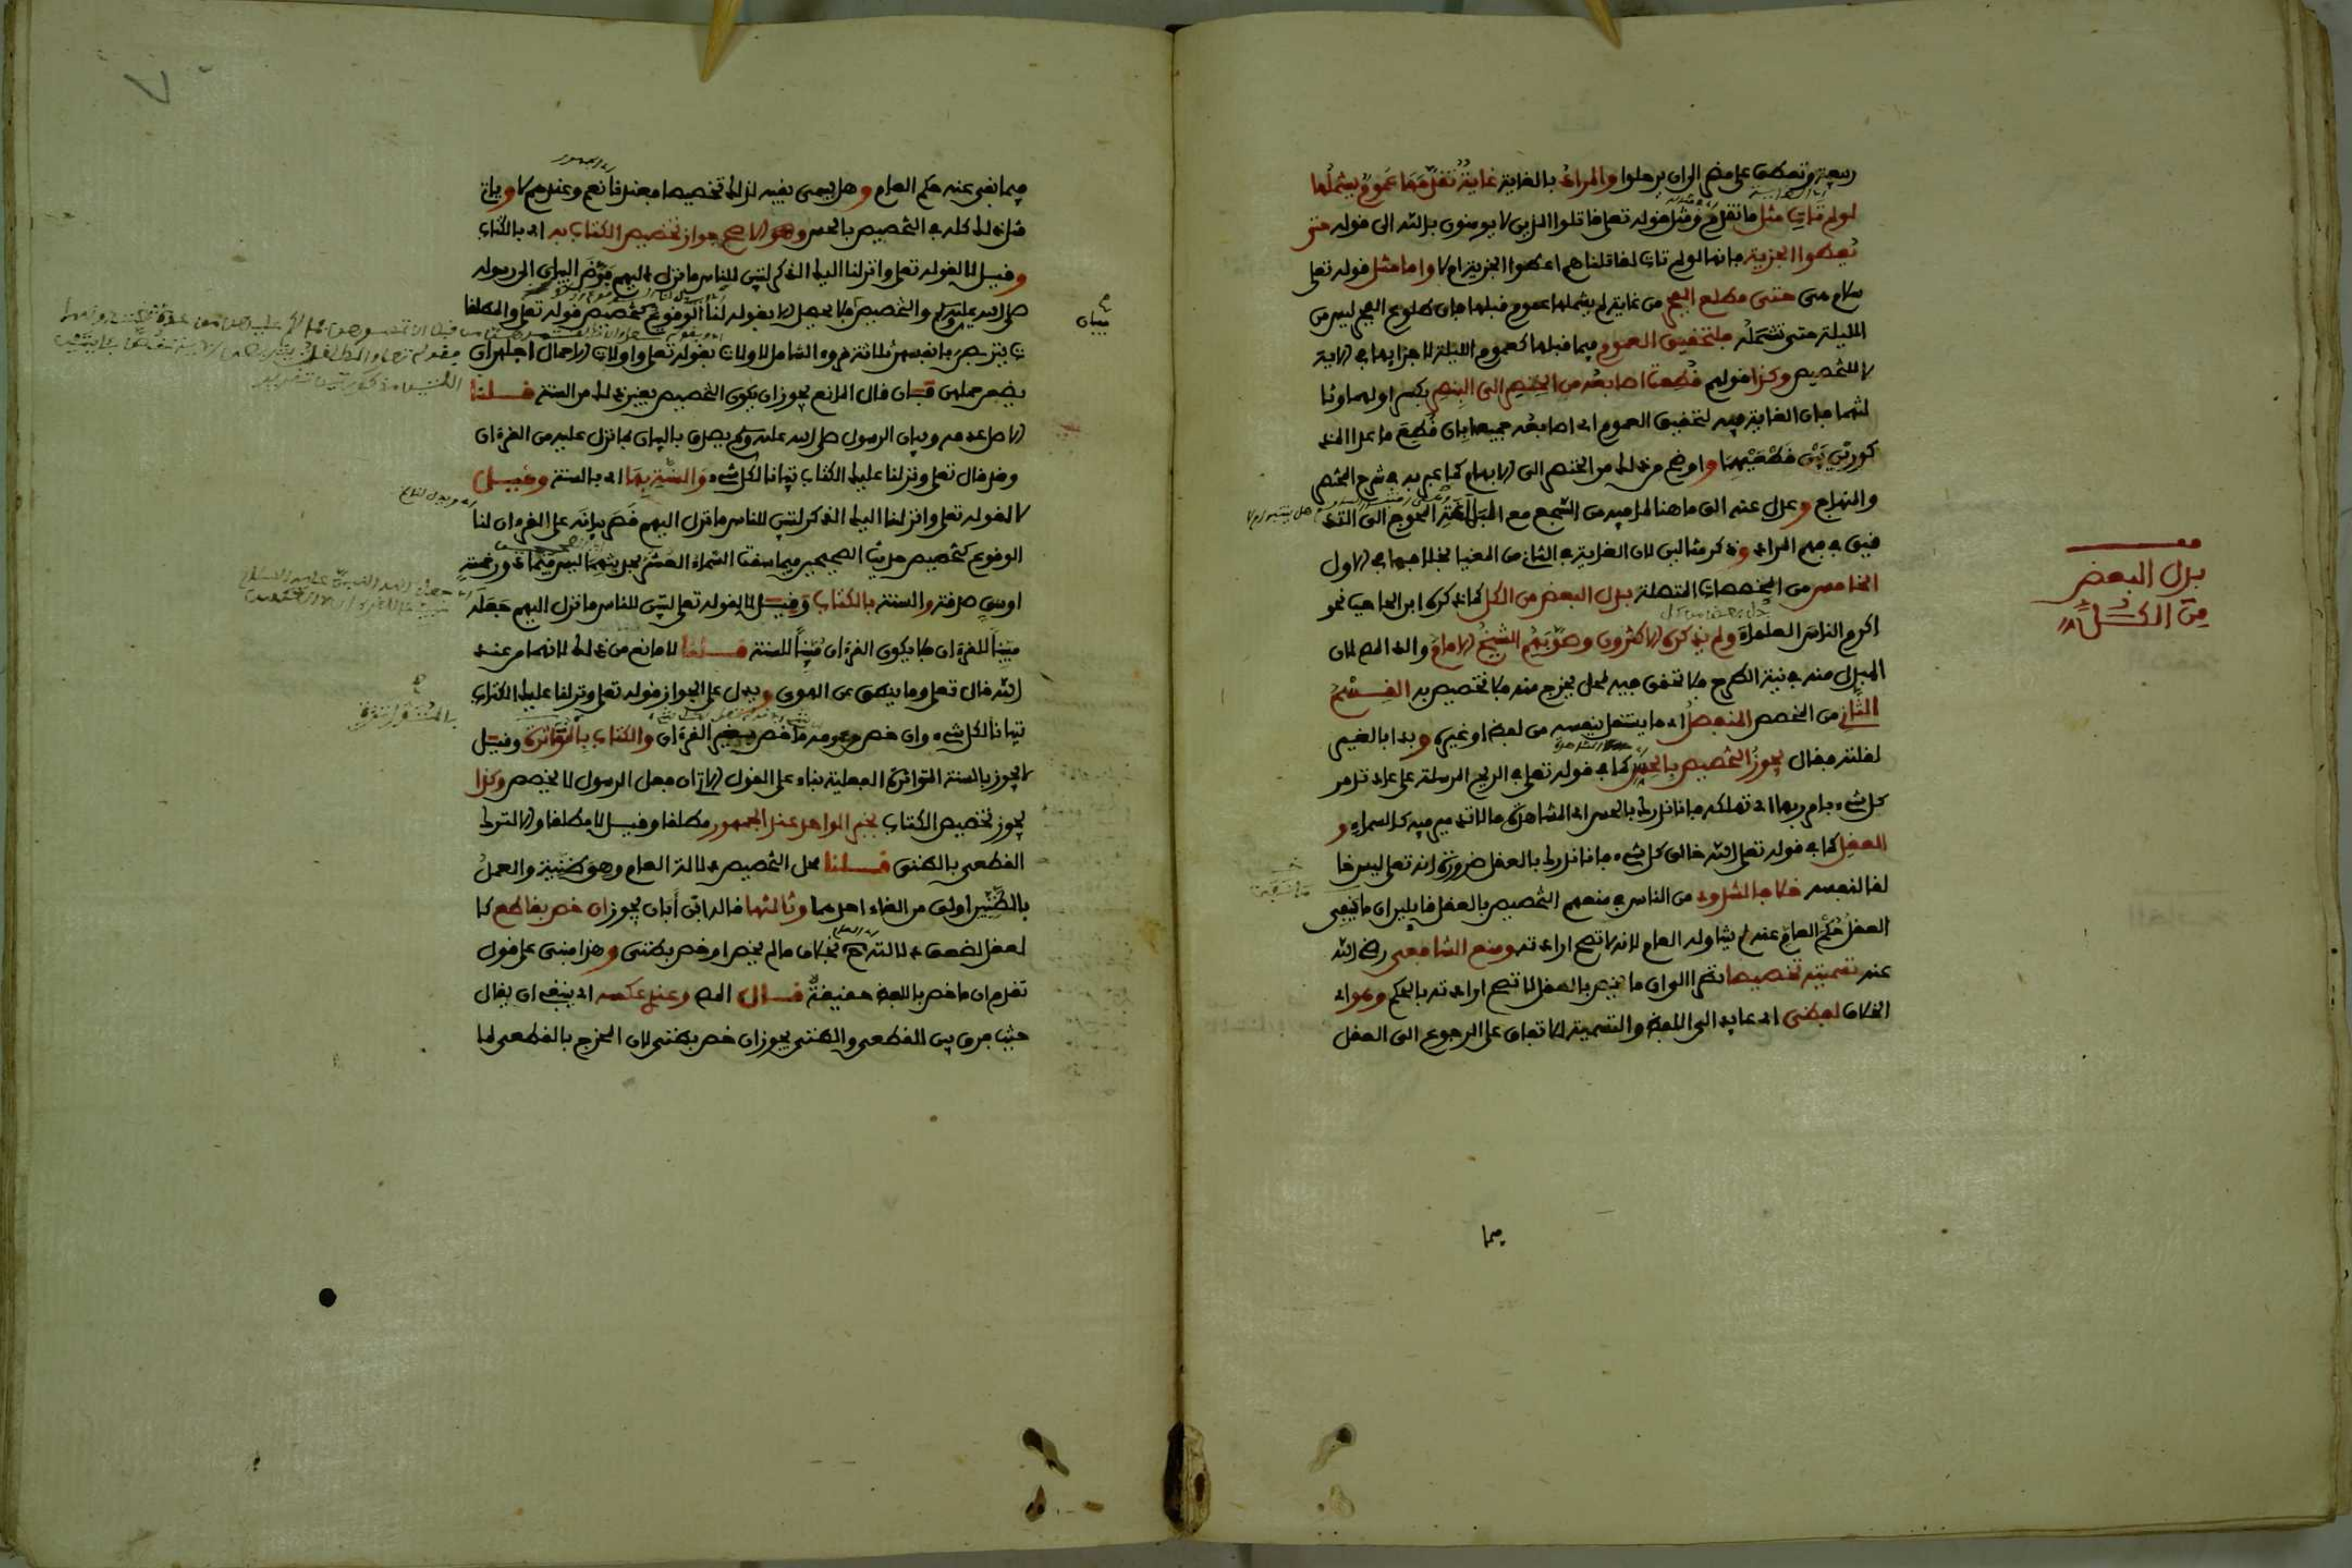 ربيعة وتعطف على مضر الا ان يرحلوا والمراد بالغاية غاية تقدمها عموم يشملها
لو لم تات مثل ما تقدم ومثل قوله تعلى قاتلوا الذين لا يومنون بالله الى قوله حتى
يعطوا الجزية فانها لو لم تات لقاتلناهم اعطوا الجزية ام لا واما مثل قوله تعلى
سلام هي حتى مطلع الفجر من غاية لم يشملها عموم قبلها فان طلوع الفجر ليس من
الليلة حتى تشمله فلتحقيق العموم فيما قبلها كعموم الليلة لاجزايها في الاية
لا للتخصيص وكذا قولهم قطعت اصابعه من الخنصر الى البنصر بكسر اولهما وثا
لثهما فان الغاية فيه لتحقيق العموم اي اصابعه جميعها بان قطع ما عدا المذ
كورتين بين قطعيهما واوضح من ذلك من الخنصر الى الابهام كما عبر به في شرح المختصر
والمنهاج وعدل عنه الى ما هنا لما فيه من السجع مع البلاغة المحوج الى التد
قيق في فهم المراد وذكر مثالين لان الغاية في الثاني من المغيا بخلافها في الاول
الخامس من المخصصات المتصلة بدل البعض من الكل كما ذكره ابن الحاجب نحو
اكرم الناس العلماء ولم يذكره الاكثرون وصوبهم الشيخ الامام والد المص لان
المبدل منه في نية الطرح فلا تحقق فيه لمحل يخرج منه فلا تخصيص به القسم
الثاني من المخصص المنفصل اي ما يستقل بنفسه من لفظ او غيره وبدا بالغير
لقلته فقال يجوز التخصيص بالحس كما في قوله تعلى في الريح المرسلة على عاد تدمر
كل شيء بامر ربها اي تهلكه فانا ندرك بالحس اي المشاهدة ما لا تدمير فيه كالسماء و
العقل كما في قوله تعلى الله خالق كل شيء فانا ندرك بالعقل ضرورة انه تعلى ليس خا
لقا لنفسه خلافا لشذوذ من الناس في منعهم التخصيص بالعقل قايلين ان ما نفى
العقل حكم العام عنه لم يتناوله العام لانه لا تصح ارادته ومنع الشافعي رضي الله
عنه تسميته تخصيصا نظرا الى ان ما يخص بالعقل لا تصح ارادته بالحكم وهو اي
الخلاف لفظي اي عايد الى اللفظ والتسمية للاتفاق على الرجوع الى العقل
فيما
بدل البعض
من الكل
فيما نفى عنه حكم العام وهل يسمى نفيه لذلك تخصيصا فعندنا نعم وعندهم لا وياتي
مثل ذلك كله في التخصيص بالحس وهو الاصح جواز تخصيص الكتاب به اي بالكتاب
وقيل لا لقوله تعلى وانزلنا اليك الذكر لتبين للناس ما نزل اليهم فوض البيان الى رسوله
صلى الله عليه وسلم والتخصيص فلا يحصل الا بقوله لنا الوقوع كتخصيص قوله تعلى والمطلقا
ت يتربصن بانفسهن ثلاثة قروء الشامل لاولات بقوله تعلى واولات الاحمال اجلهن ان
يضعن حملهن فان قال المانع يجوز ان يكون التخصيص بغير ذلك من السنة قلنا
الاصل عدمه وبيان الرسول صلى الله عليه وسلم يصدق بالبيان بما نزل عليه من القرءان
وقد قال تعلى ونزلنا عليك الكتاب تبيانا لكل شيء والسنة بها اي بالسنة وقيل
لا لقوله تعلى وانزلنا اليك الذكر لتبين للناس ما نزل اليهم قصر بيانه على القرءان لنا
الوقوع كتخصيص حديث الصحيحين فيما سقت السماء العشر بحديثهما ليس فيما دون خمسة
اوسق صدقة والسنة بالكتاب وقيل لا لقوله تعلى لتبين للناس ما نزل اليهم جعله
مبينا للقرءان فلا يكون القرءان مبينا للسنة قلنا لا مانع من ذلك لانهما من عند
الله قال تعلى وما ينطق عن الهوى ويدل على الجواز قوله تعلى ونزلنا عليك الكتاب
تبيانا لكل شيء وان خص من عمومه ما خص بغير القرءان والكتاب بالمتواترة وقيل
لا يجوز بالسنة المتواترة الفعلية بناء على القول الاتي ان فعل الرسول لا يخصص وكذا
يجوز تخصيص الكتاب بخبر الواحد عند الجمهور مطلقا وقيل لا مطلقا والا لترك
القطعي بالظني قلنا محل التخصيص دلالة العام وهي ظنية والعمل
بالظنين اولى من الغاء احدهما وثالثها قاله ابن أبان يجوز ان خص بقاطع كا
لعقل لضعف دلالته ح بخلاف ما لم يخص او خص بظني وهذا مبني على قول
تقدم ان ما خص باللفظ حقيقة قال المص وعندي عكسه اي ينبغي ان يقال
حيث فرق بين القطعي والظني يجوز ان خص بظني لان المخرج بالقطعي لما
بيان